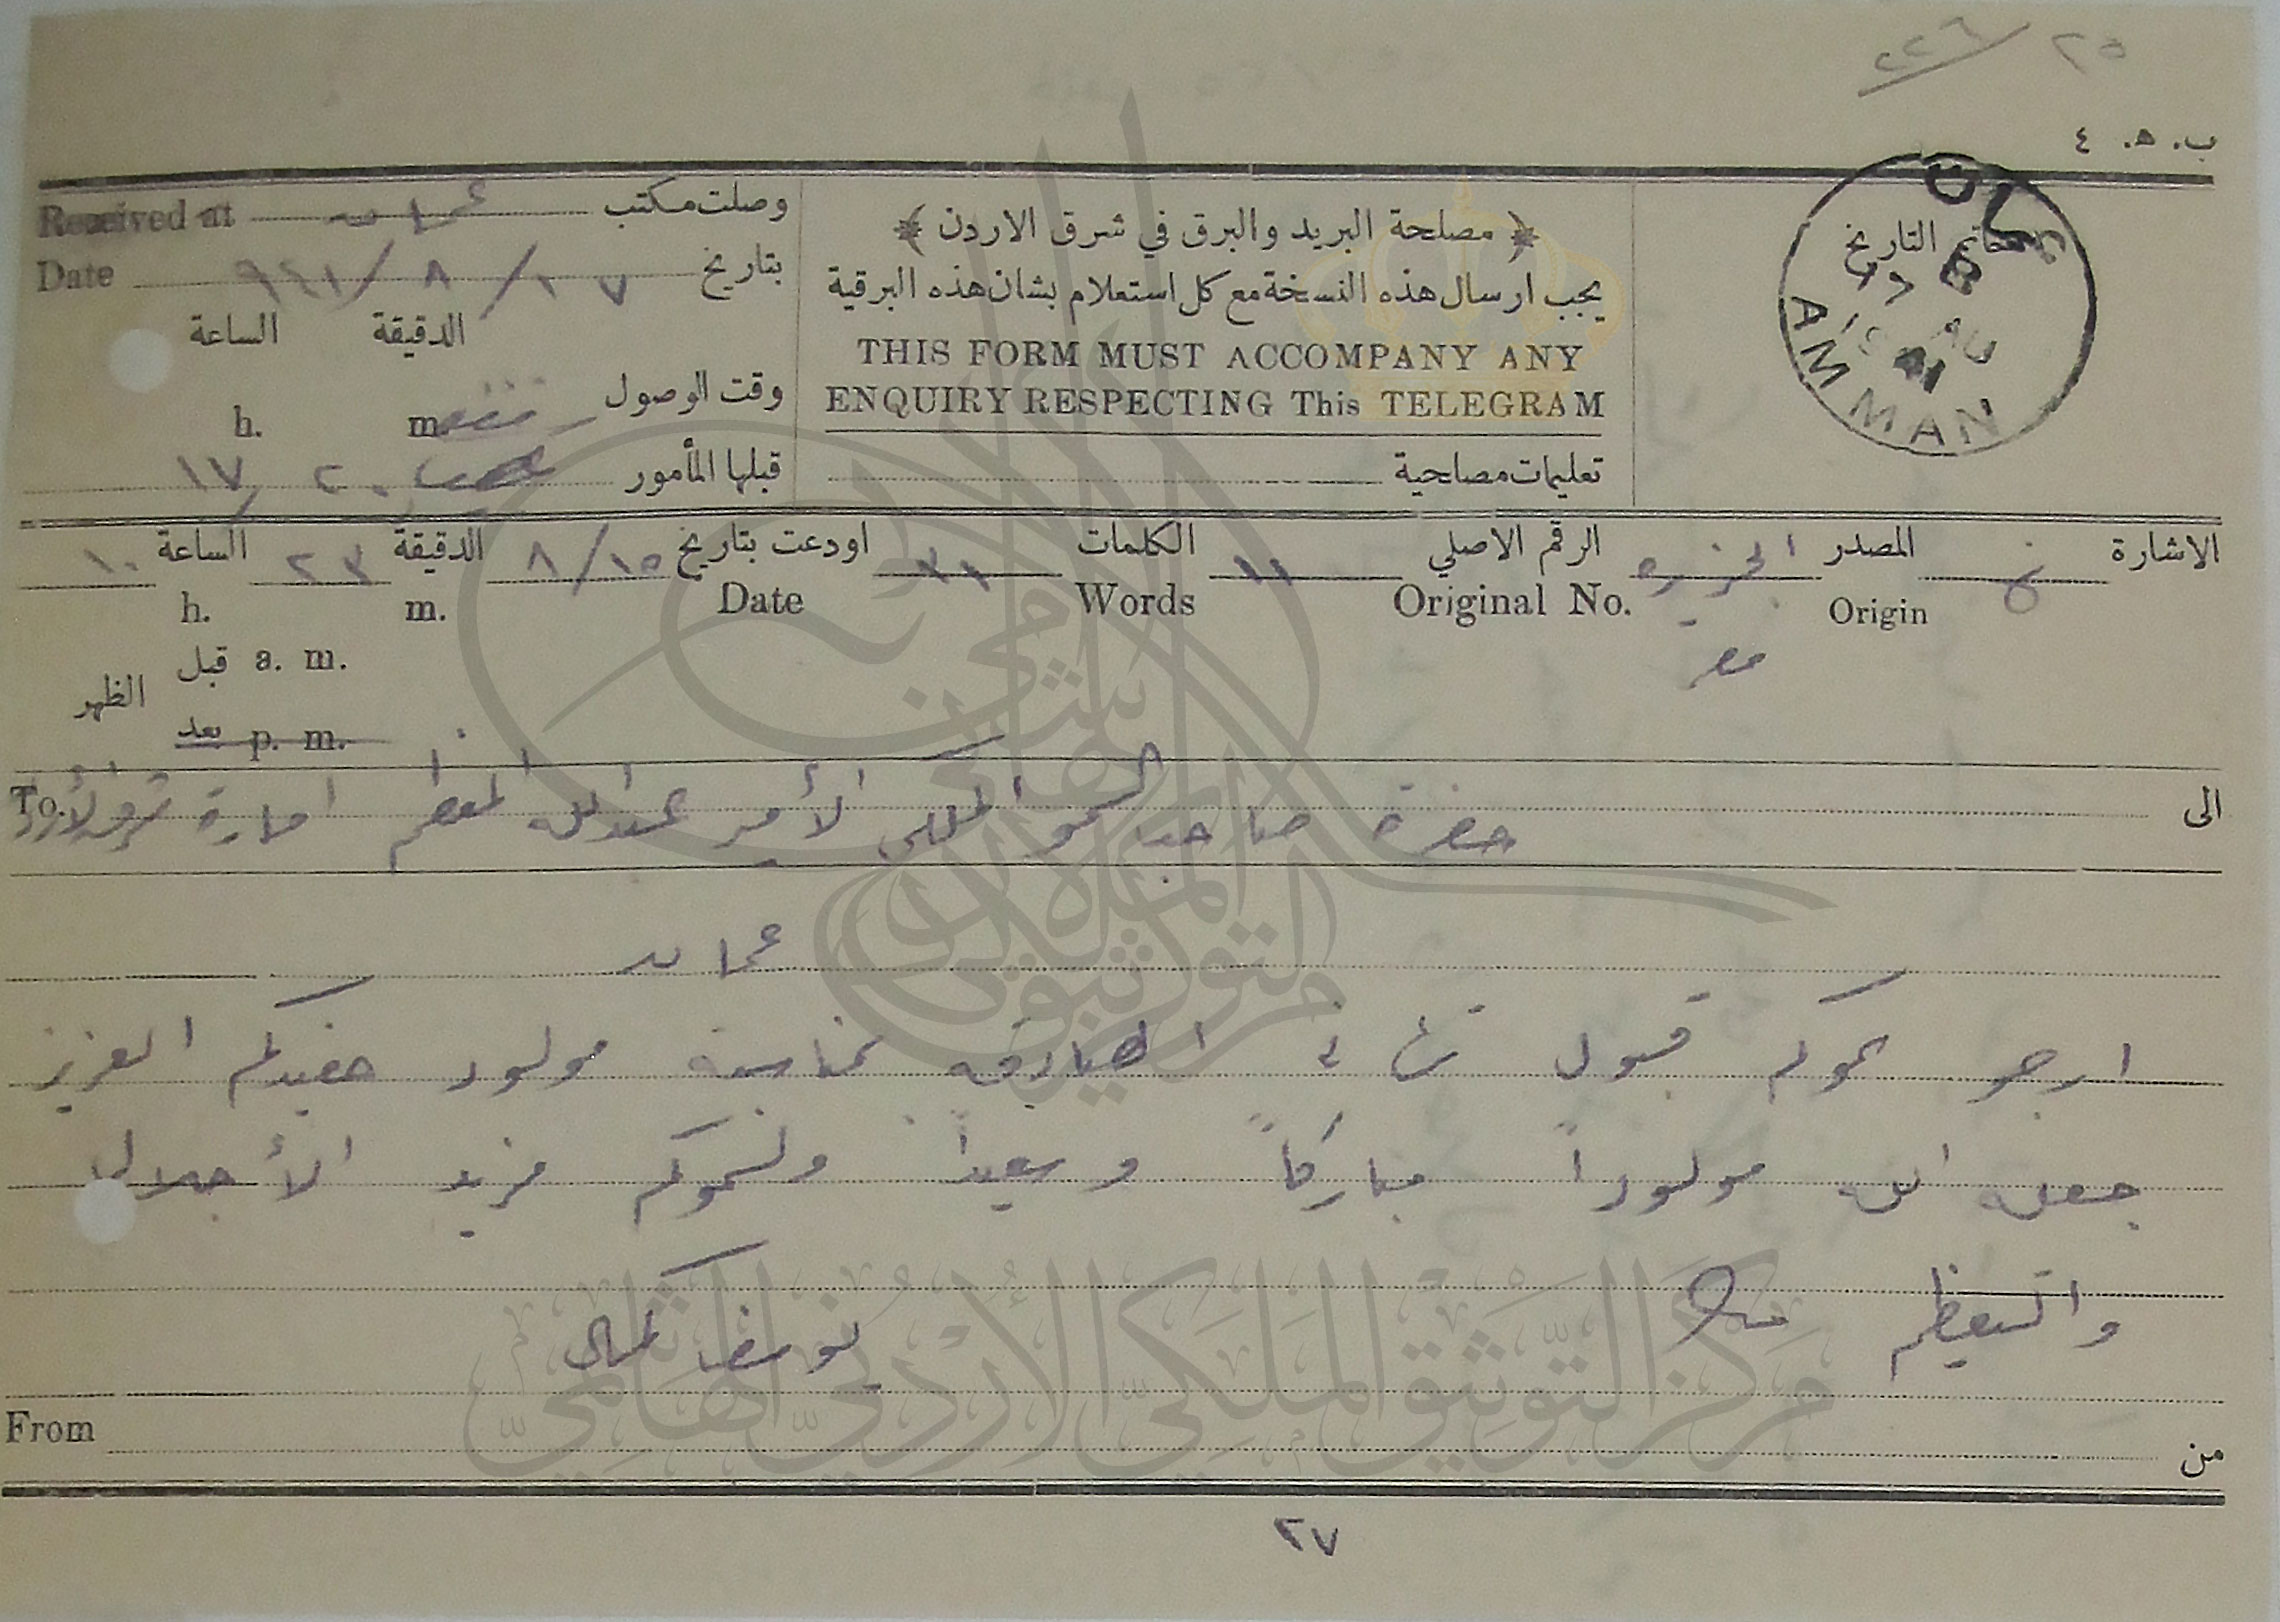 ٢٥ / ٢٢٦
ب. ه. ٤
وصلت مكتب عمان Received at
بتاريخ ٢٧ / ٨ / ٩٤١ Date
الدقيقة الساعة
وقت الوصول m. h.
قبلها المأمور ٢٠ ١٧
﴿ مصلحة البريد والبرق في شرق الاردن ﴾
يجب ارسال هذه النسخة مع كل استعلام بشان هذه البرقية
THIS FORM MUST ACCOMPANY ANY
ENQUIRY RESPECTING This TELEGRAM
تعليمات مصلحية
خاتم التاريخ
27 AU
41
AMMAN
الاشارة المصدر الجيزه الرقم الاصلي ١١ الكلمات ٣١ اودعت بتاريخ ١٥/٨ الدقيقة ٢٣ الساعة ١٠
Origin Original No. Words Date m. h.
مصر
قبل a. m.
الظهر
بعد p. m.
الى حضرة صاحب السمو الملكي الأمير عبدالله المعظم امارة شرق الأردن To
عمان
ارجو سموكم قبول تهانئ الصادقه بمناسبة مولود حفيدكم العزيز
جعله الله مولوداً مباركاً وسعيداً ولسموكم مزيد الأجلال
والتعظيم
يوسف كمال
من From
٢٧
مركز التوثيق الملكي الأردني الهاشمي